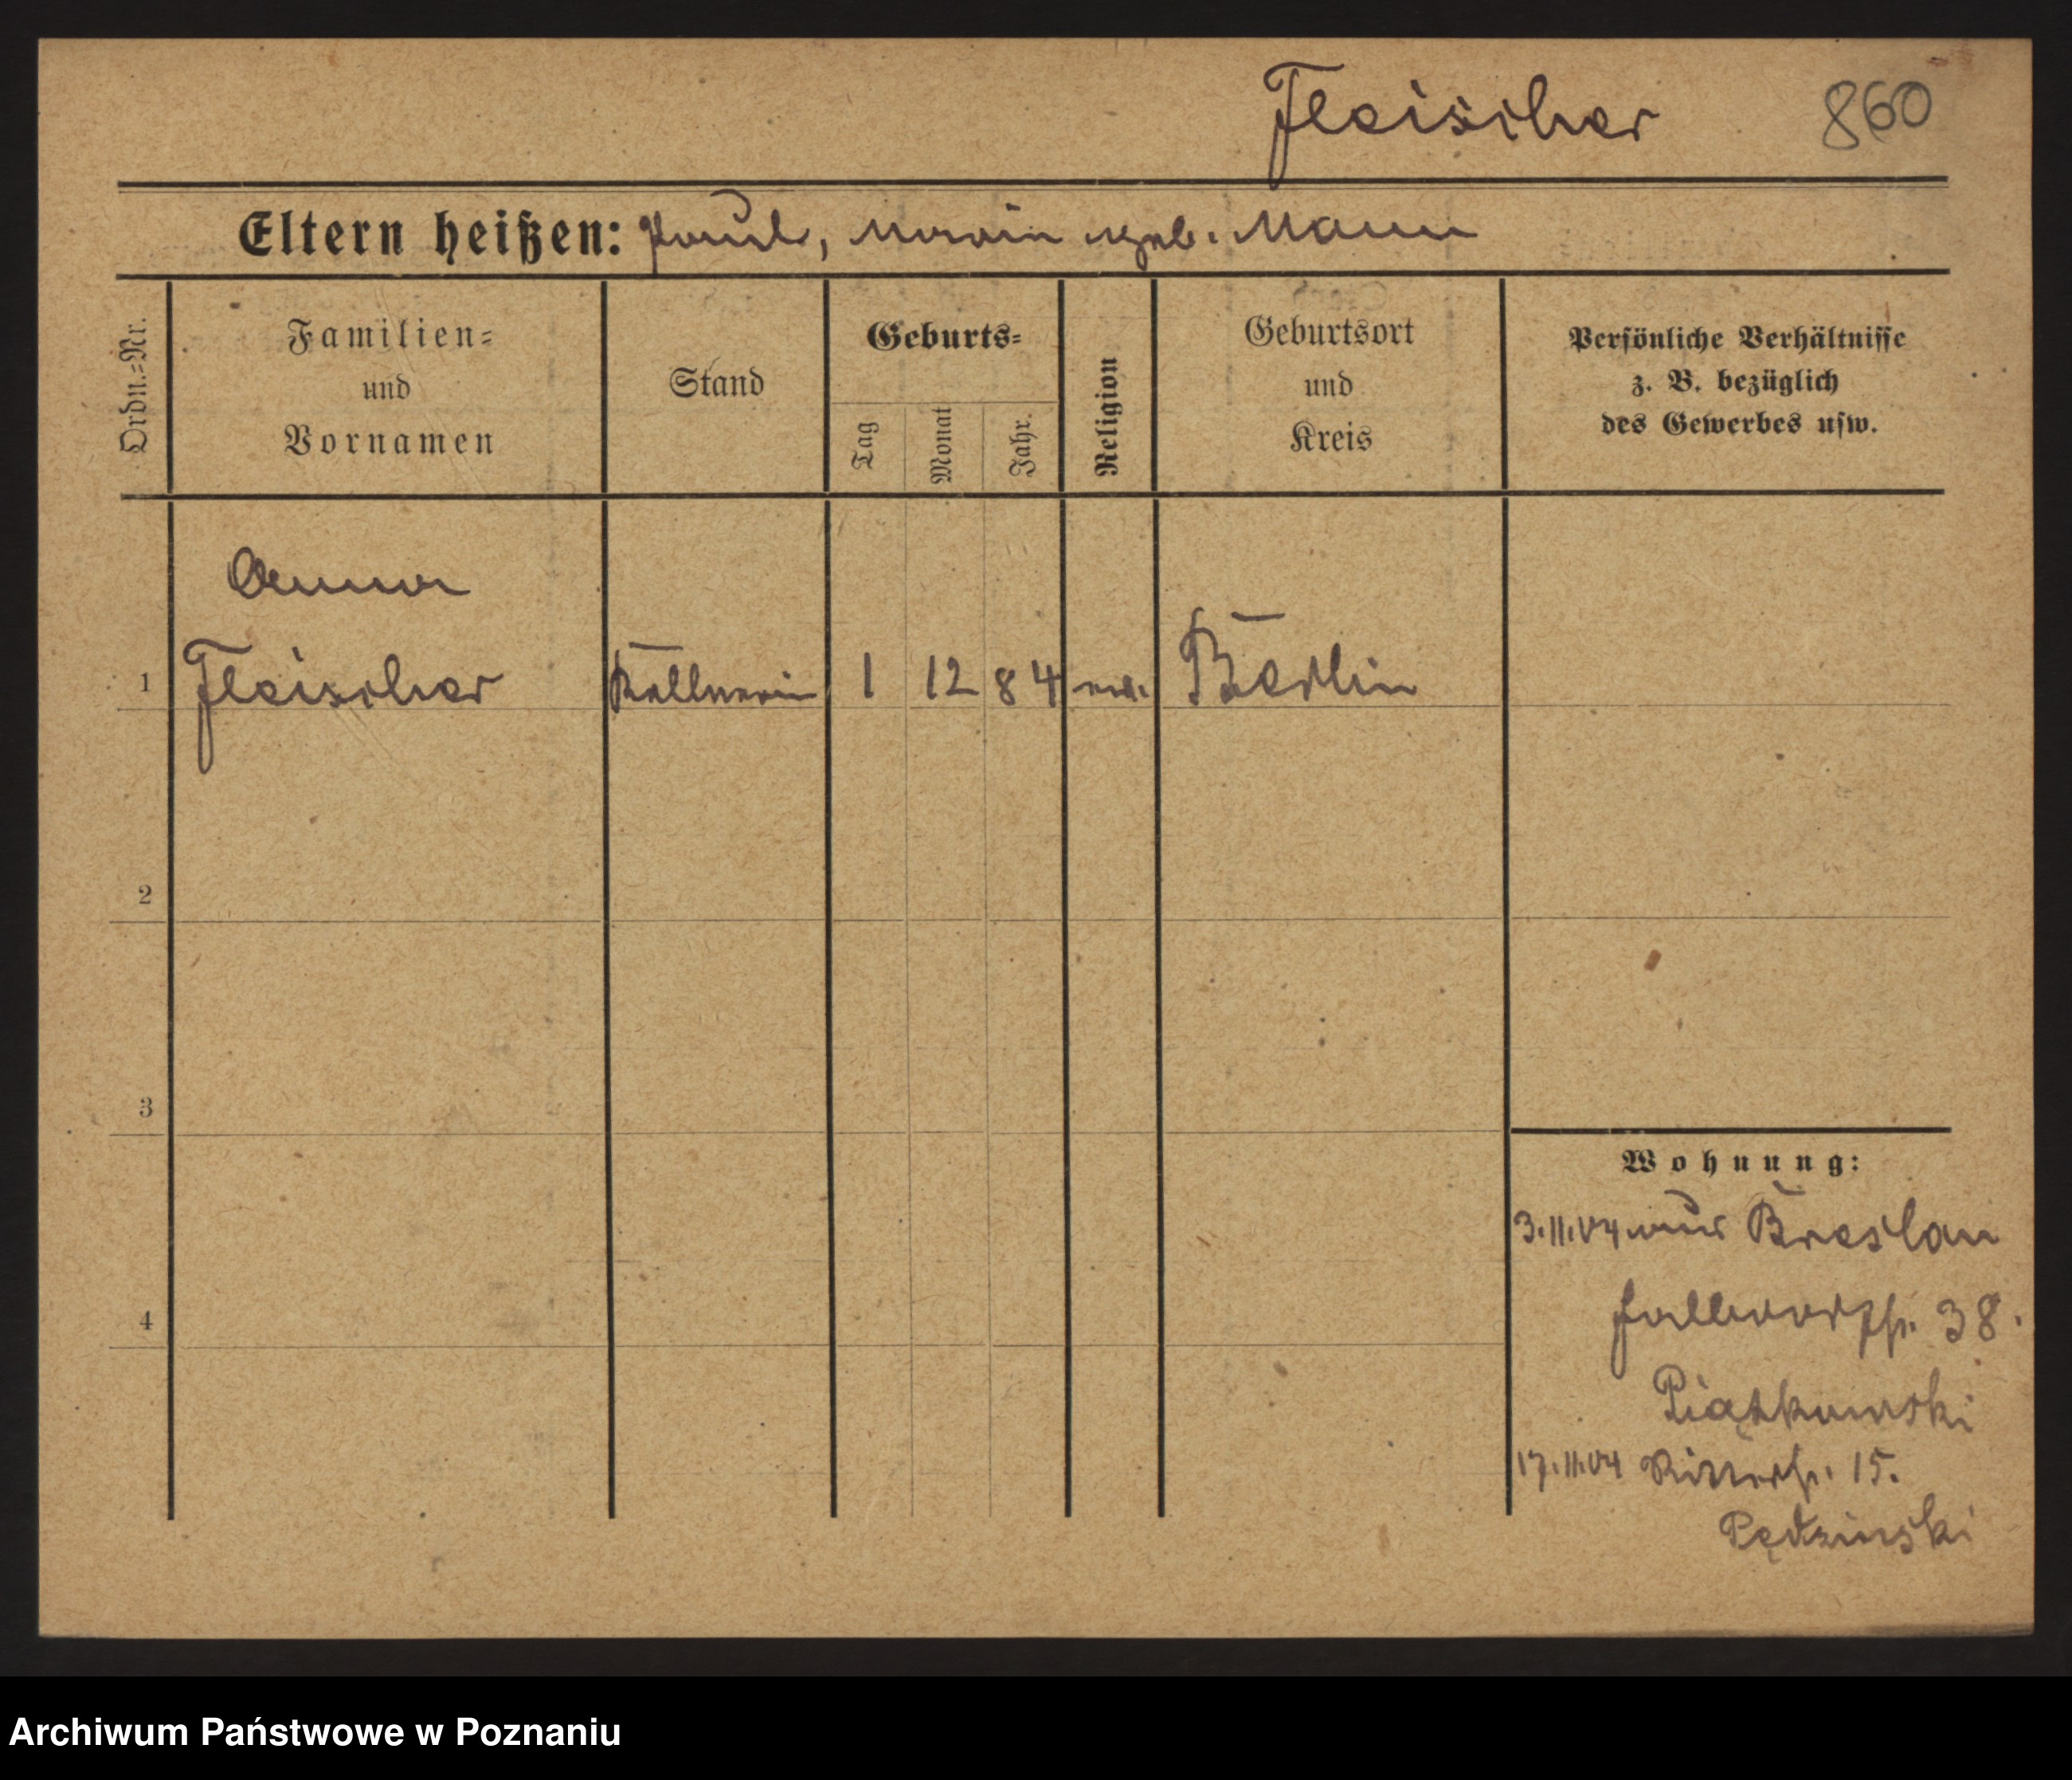 Fleischer 860
Eltern heißen: Paul, Marie geb. Mann
Ordn.=Nr.
Familien=
und
Vornamen
Stand
Geburts=
Tag
Monat
Jahr.
Religion
Geburtsort
und
Kreis
Persönliche Verhältnisse
z. B. bezüglich
des Gewerbes usw.
Anna
1 Fleischer Kellnerin 1 12 84 ev. Berlin
2
3
4
Wohnung:
3.11.04 aus Breslau
Halbdorfstr. 38.
Piątkowski
17.11.04 Ritterstr. 15.
Pędzinski
Archiwum Państwowe w Poznaniu